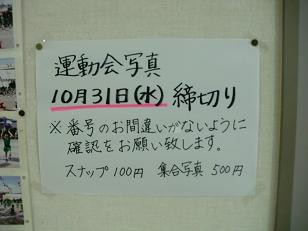 運動会写真
10月31日(水)締切り
※番号のお間違いがないように
確認をお願い致します。
スナップ100円 集合写真 500円